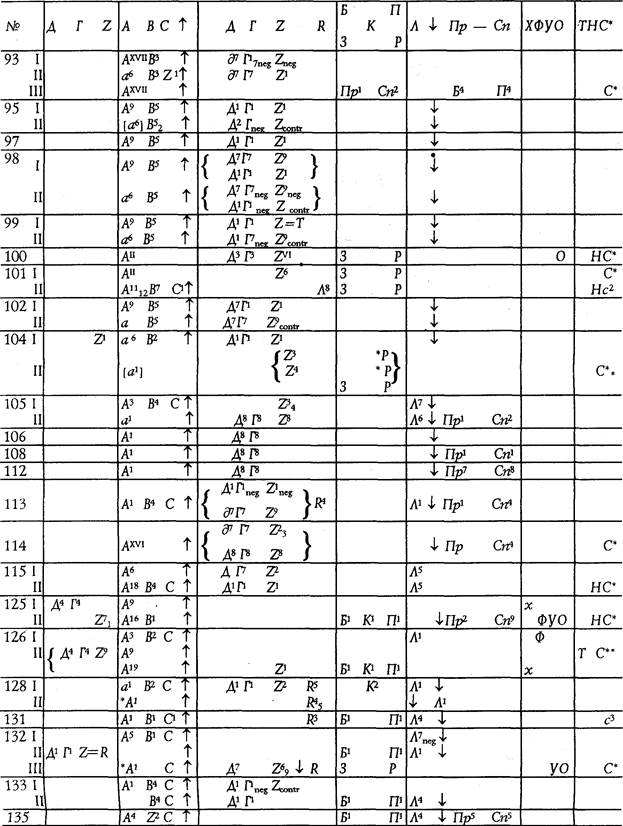 № Д Г Z A B C ↑ Д Г Z R Б П К З Р Λ ↓ Пр — Сп ХФУО ТНС*
93 I Aˣⱽᴵᴵ B³ ↑ ∂⁷ Г⁷neg Zneg
II a⁶ B³ Z¹ ↑ ∂⁷ Г⁷ Z¹
III Aˣⱽᴵᴵ ↑ Пр¹ Сп² Б⁴ П⁴ С*
95 I A⁹ B⁵ ↑ Д¹ Г¹ Z¹ ↓
II [a⁶] B⁵₂ ↑ Д² Гneg Zcontr ↓
97 A⁹ B⁵ ↑ Д¹ Г¹ Z¹ ↓
98 I A⁹ B⁵ ↑ { Д⁷ Г⁷ Z⁹ } ↓
Д¹ Г¹ Z¹
II a⁶ B⁵ ↑ { Д⁷ Г⁷neg Z⁹neg } ↓
Д¹ Г¹neg Z contr
99 I A⁹ B⁵ ↑ Д¹ Г¹ Z=T ↓
II a⁶ B⁵ ↑ Д¹ Г⁷neg Z⁹contr ↓
100 Aᴵᴵ Д³ Г³ Zⱽᴵ З Р О НС*
101 I Aᴵᴵ Z⁶ З Р С*
II A¹¹₁₂ B⁷ C¹ ↑ Λ⁸ З Р Нс²
102 I A⁹ B⁵ ↑ Д⁷ Г¹ Z¹ ↓
II a B⁵ ↑ Д⁷ Г⁷ Z⁹contr ↓
104 I Z¹ a⁶ B² ↑ Д¹ Г¹ Z¹ ↓
II [a¹] { Z³ *Р }
Z⁴ *Р С*⁎
З Р
105 I A³ B⁴ C ↑ Z³₄ Λ⁷ ↓
II a¹ ↑ Д⁸ Г⁸ Z⁸ Λ⁶ ↓ Пр¹ Сп²
106 A¹ ↑ Д⁸ Г⁸ ↓
108 A¹ ↑ Д⁸ Г⁸ ↓ Пр¹ Сп¹
112 A¹ ↑ Д⁸ Г⁸ ↓ Пр⁷ Сп⁸
113 A¹ B⁴ C ↑ { Д¹ Г¹neg Z¹neg } R⁴ Λ¹ ↓ Пр¹ Сп⁴
∂⁷ Г⁷ Z⁹
114 Aˣⱽᴵ ↑ { ∂⁷ Г⁷ Z²₃ } ↓ Пр Сп⁴ С*
Д⁸ Г⁸ Z⁸
115 I A⁶ ↑ Д Г⁷ Z² Λ⁵
II A¹⁸ B⁴ C ↑ Д¹ Г¹ Z¹ Λ⁵ НС*
125 I Д⁴ Г⁴ A⁹ ↑ х
II Z⁷₁ A¹⁶ B¹ ↑ Б¹ К¹ П¹ ↓ Пр² Сп⁹ ФУО НС*
126 I A³ B² C ↑ Λ¹ Ф
II { Д⁴ Г⁴ Z⁹ A⁹ ↑ Т С**
A¹⁹ ↑ Z¹ Б¹ К¹ П¹ х
128 I a¹ B² C ↑ Д¹ Г¹ Z² R⁵ К² Λ¹ ↓
II *A¹ ↑ R⁴₅ ↓ Λ¹
131 A¹ B¹ C¹ ↑ R³ Б¹ П¹ Λ⁴ ↓ с³
132 I A⁵ B¹ C ↑ Λ⁷neg ↓
II Д¹ Г¹ Z=R ↑ Б¹ П¹ Λ¹ ↓
III *A¹ C ↑ Д⁷ Z⁶₉ ↓ R З Р УО С*
133 I A¹ B⁴ C ↑ Д¹ Г¹neg Zcontr
II B⁴ C ↑ Д¹ Г¹ Б¹ П¹ Λ⁴ ↓
135 A⁴ Z² C ↑ Б¹ П¹ Λ⁴ ↓ Пр⁵ Сп⁵